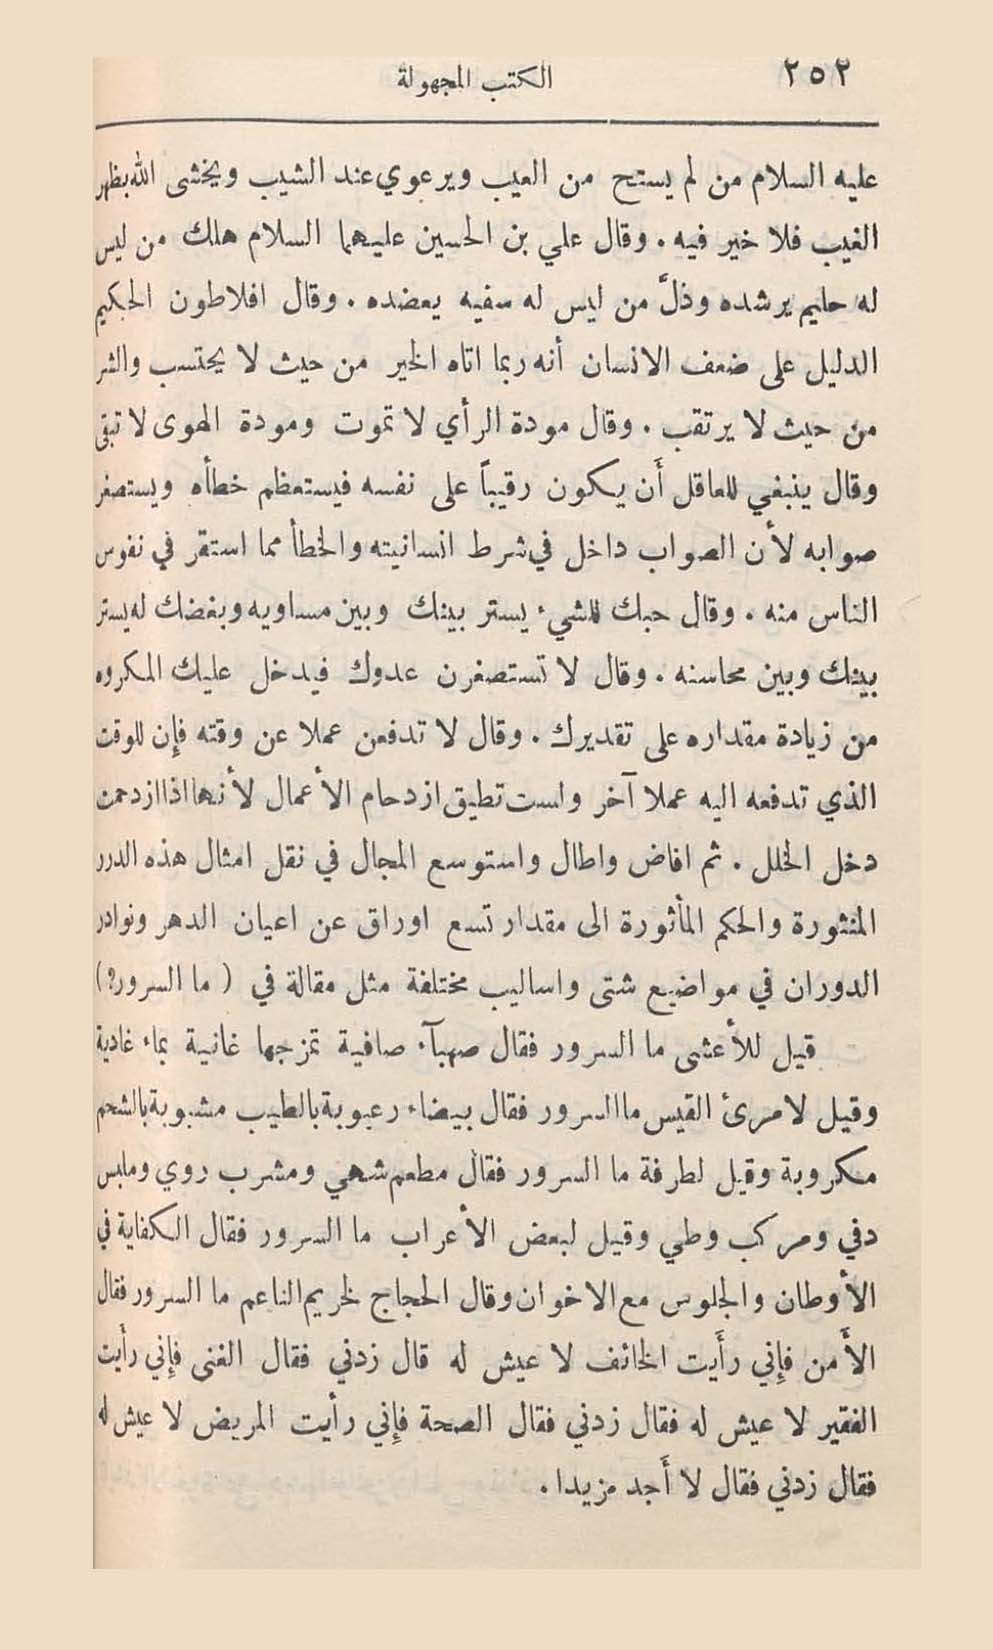 ٢٥٢
الكتب المجهولة
عليه السلام من لم يستح من العيب ويرعوي عند الشيب ويخشى الله بظهر
الغيب فلا خير فيه . وقال علي بن الحسين عليهما السلام هلك من ليس
له حليم يرشده وذلّ من ليس له سفيه يعضده . وقال افلاطون الحكيم
الدليل على ضعف الانسان أنه ربما اتاه الخير من حيث لا يحتسب والشر
من حيث لا يرتقب . وقال مودة الرأي لا تموت ومودة الهوى لا تبقى
وقال ينبغي للعاقل أَن يكون رقيباً على نفسه فيستعظم خطأه ويستصغر
صوابه لأن الصواب داخل في شرط انسانيته والخطأ مما استقر في نفوس
الناس منه . وقال حبك للشيء يستر بينك وبين مساويه وبغضك له يستر
بينك وبين محاسنه . وقال لا تستصغرن عدوك فيدخل عليك المكروه
من زيادة مقداره على تقديرك . وقال لا تدفعن عملا عن وقته فإن للوقت
الذي تدفعه اليه عملا آخر ولست تطيق ازدحام الأعمال لأنها اذا ازدحمت
دخل الخلل . ثم افاض واطال واستوسع المجال في نقل امثال هذه الدرر
المنثورة والحكم المأثورة الى مقدار تسع اوراق عن اعيان الدهر ونوادر
الدوران في مواضيع شتى واساليب مختلفة مثل مقالة في ( ما السرور؟ )
قيل للأعشى ما السرور فقال صهبآء صافية تمزجها غانية بماء غادية
وقيل لامرئ القيس ما السرور فقال بيضاء رعبوبة بالطيب مشبوبة بالشحم
مكروبة وقيل لطرفة ما السرور فقال مطعم شهي ومشرب روي وملبس
دفي ومركب وطي وقيل لبعض الأعراب ما السرور فقال الكفاية في
الأوطان والجلوس مع الاخوان وقال الحجاج لخريم الناعم ما السرور فقال
الأَمن فإِني رأَيت الخائف لا عيش له قال زدني فقال الغنى فإِني رأَيت
الفقير لا عيش له فقال زدني فقال الصحة فإِني رأيت المريض لا عيش له
فقال زدني فقال لا أَجد مزيدا .